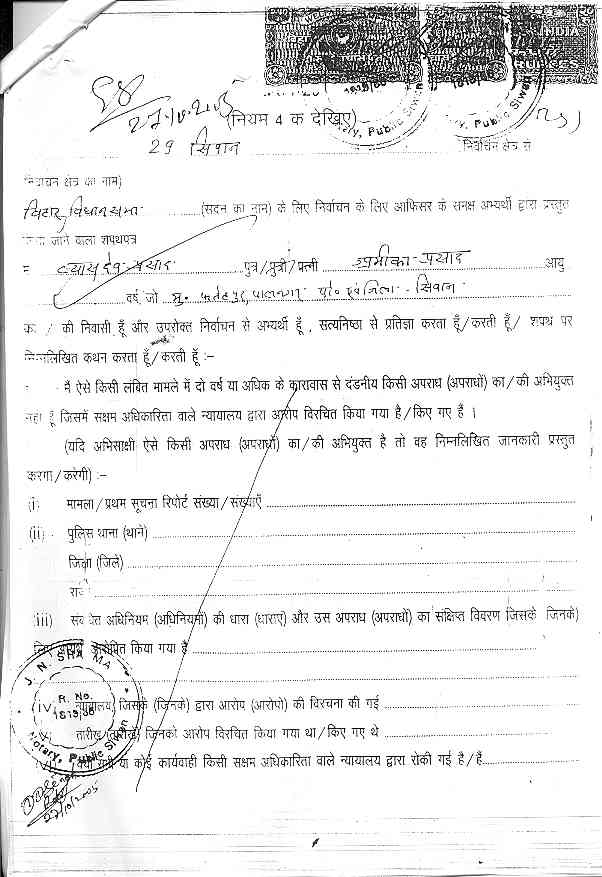 INDIA
RUPEES
1819/00
Notary, Public Siwan
27.10.2005
(नियम 4 क देखिए)
29 सिवान
निर्वाचन क्षेत्र से
निर्वाचन क्षेत्र का नाम)
बिहार विधान सभा ..........(सदन का नाम) के लिए निर्वाचन के लिए आफिसर के समक्ष अभ्यर्थी द्वारा प्रस्तुत
जाने वाला शपथपत्र
व्यास देव प्रसाद पुत्र/पुत्री/पत्नी प्रसाद आयु
वर्ष, जो मु. पो. एवं जिला - सिवान
का / की निवासी हूँ और उपरोक्त निर्वाचन से अभ्यर्थी हूँ, सत्यनिष्ठा से प्रतिज्ञा करता हूँ/करती हूँ/ शपथ पर
निम्नलिखित कथन करता हूँ/करती हूँ :-
मै ऐसे किसी लंबित मामले में दो वर्ष या अधिक के कारावास से दंडनीय किसी अपराध (अपराधों) का/की अभियुक्त
नहीं हूँ जिसमें सक्षम अधिकारिता वाले न्यायालय द्वारा आरोप विरचित किया गया है/किए गए हैं ।
(यदि अभिसाक्षी ऐसे किसी अपराध (अपराधों) का/की अभियुक्त है तो वह निम्नलिखित जानकारी प्रस्तुत
करेगा/करेगी) :-
(i) मामला/प्रथम सूचना रिपोर्ट संख्या/संख्याएँ
(ii) पुलिस थाना (थाने)
जिला (जिले)
(iii) संबंधित अधिनियम (अधिनियमों) की धारा (धाराएं) और उस अपराध (अपराधों) का संक्षिप्त विवरण जिसके जिनके)
लिए आरोपित किया गया है
J. N. SHARMA
R. No.
1819/00
Notary, Public Siwan
IV) न्यायालय जिसके (जिनके) द्वारा आरोप (आरोपो) की विरचना की गई
तारीख (तारीखें) जिनको आरोप विरचित किया गया था/किए गए थे
या कोई कार्यवाही किसी सक्षम अधिकारिता वाले न्यायालय द्वारा रोकी गई है/हैं
27/10/2005